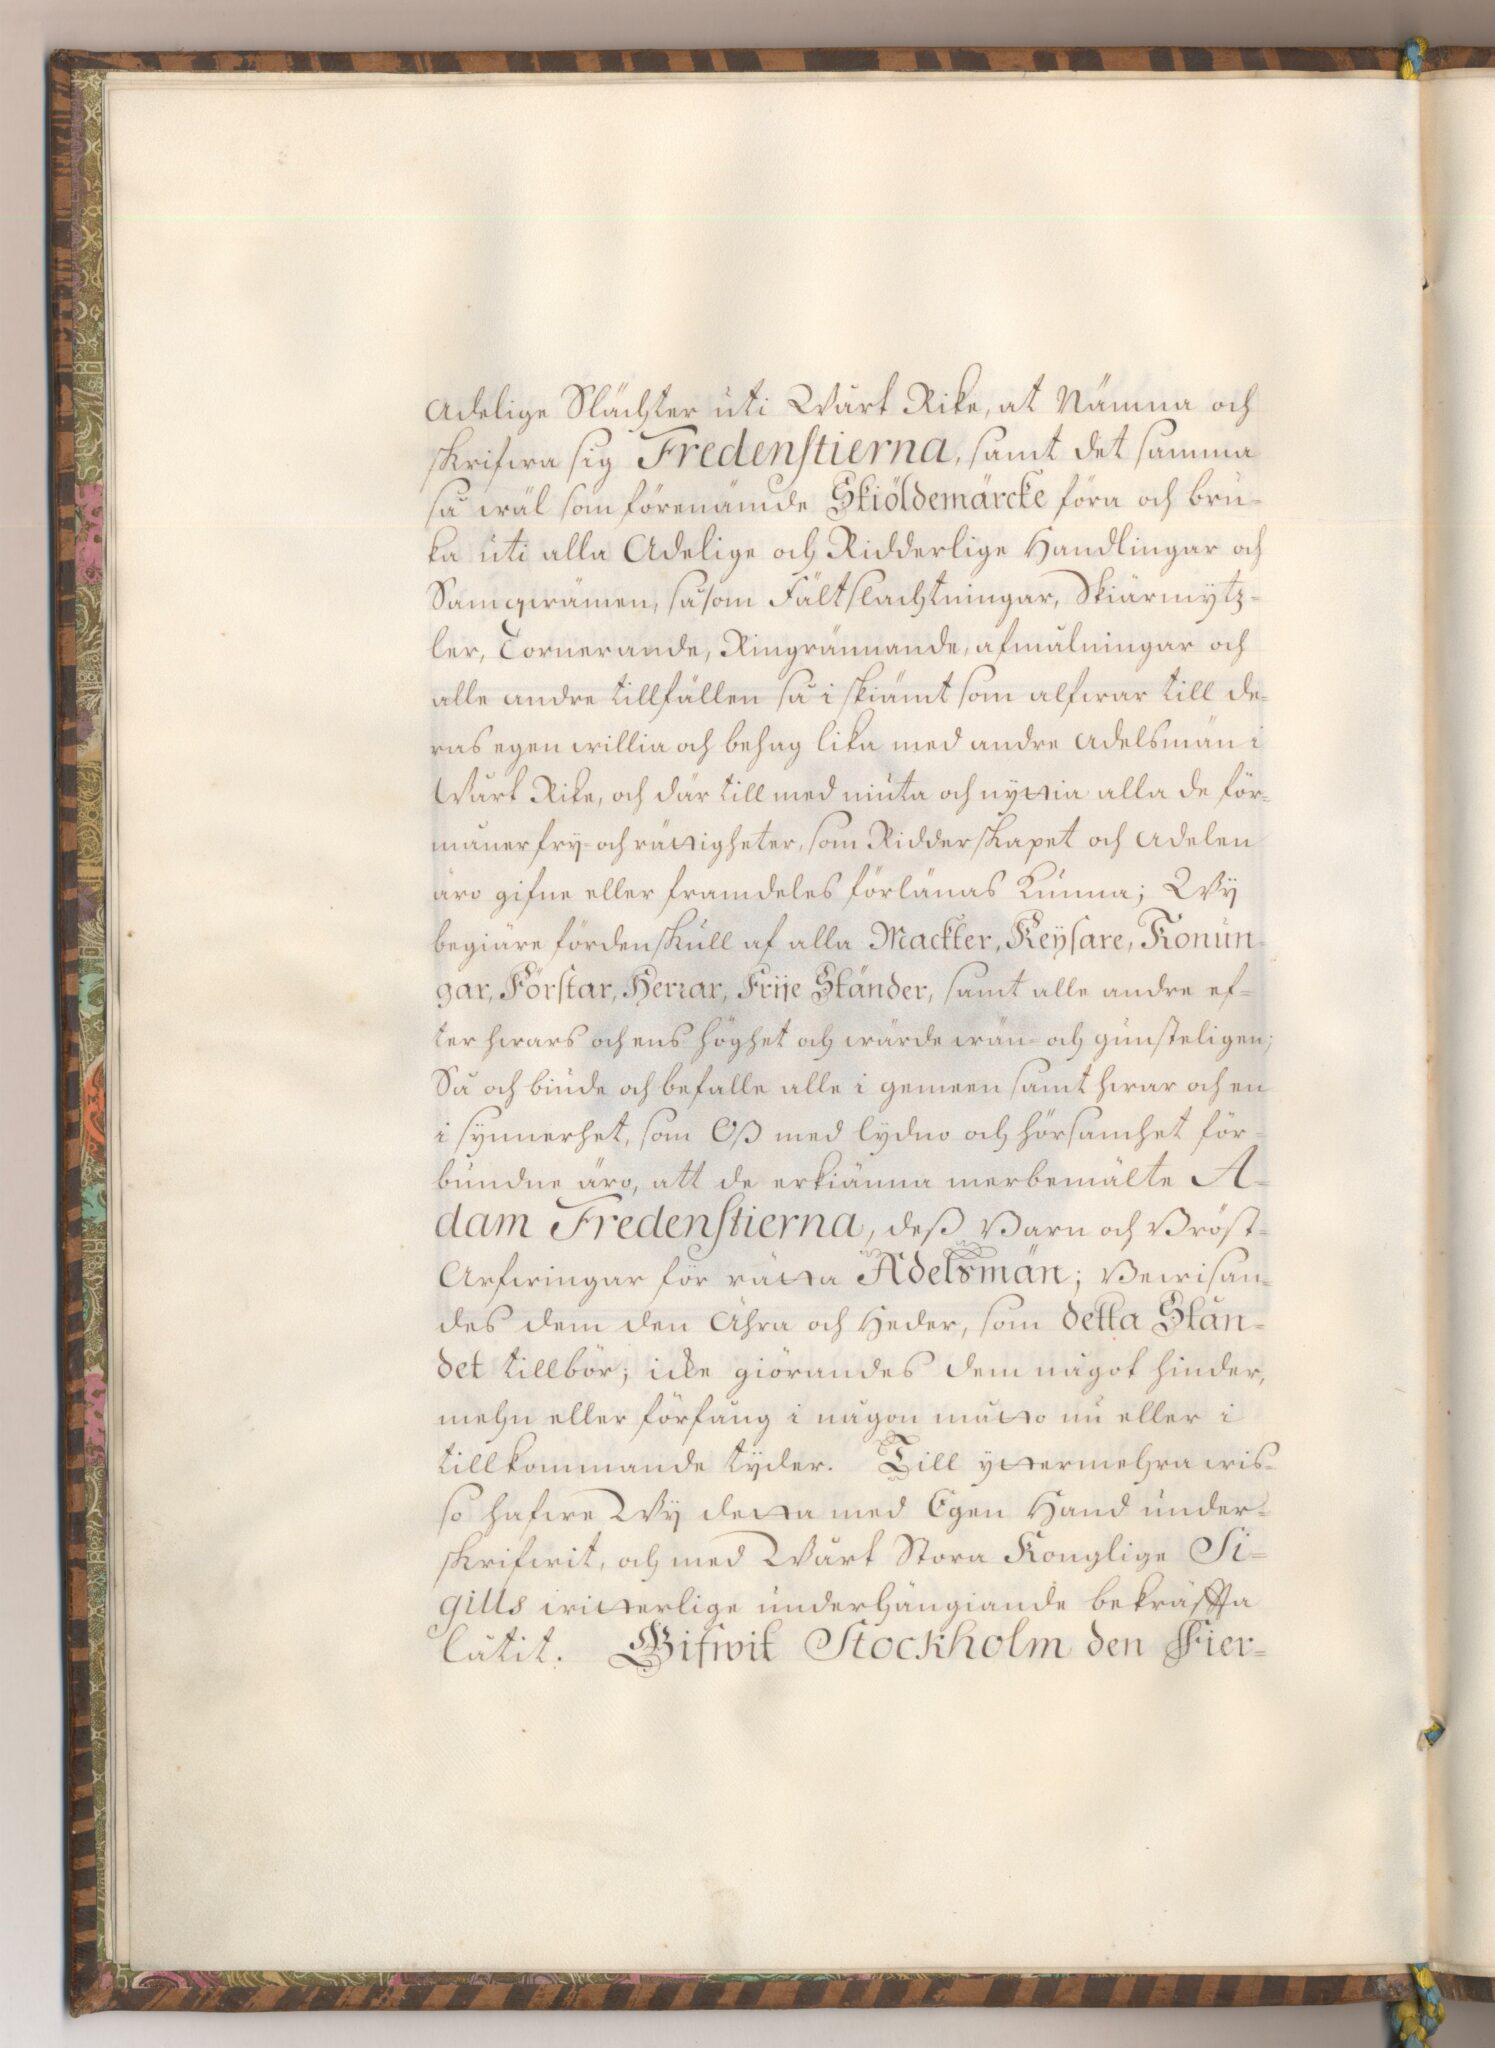 Adelige Slächter uti Wårt Rike, at Nämna och
skrifwa sig Fredenstierna, samt det samma
så wäl som förenämde Skiöldemärcke föra och bru-
ka uti alla Adelige och Ridderlige Handlingar och
Samqwämen, såsom Fältslachtningar, Skiärmytz-
ler, Tornerande, Ringrännande, afmålningar och
alle andre tillfällen så i skiämt som alfwar till de-
ras egen willia och behag lika med andre Adelsmän i
Wårt Rike, och där till med niuta och nyttia alla de för-
måner fry- och rättigheter, som Ridderskapet och Adelen
äro gifne eller framdeles förlänas kunna; Wy
begiäre fördenskull af alla Mackter, Keysare, Konun-
gar, Förstar, Herrar, Frije Ständer, samt alle andre ef-
ter hwars och ens höghet och wärde wän- och gunsteligen;
Så och biude och befalle alle i gemeen samt hwar och en
i synnerhet, som Oß med lydno och hörsamhet för-
bundne äro, att de erkiänna merbemälte A-
dam Fredenstierna, deß Barn och Bröst-
Arfwingar för rätta Adelsmän; Bewisan-
des dem den Ähra och Heder, som detta Stån-
det tillbör; icke giörandes dem något hinder,
mehn eller förfång i någon måtto nu eller i
tillkommande tyder. Till yttermehra wis-
so hafwe Wy detta med Egen Hand under-
skrifwit, och med Wårt Stora Konglige Si-
gills witterlige underhängiande bekräffta
låtit. Gifwit Stockholm den Fier-